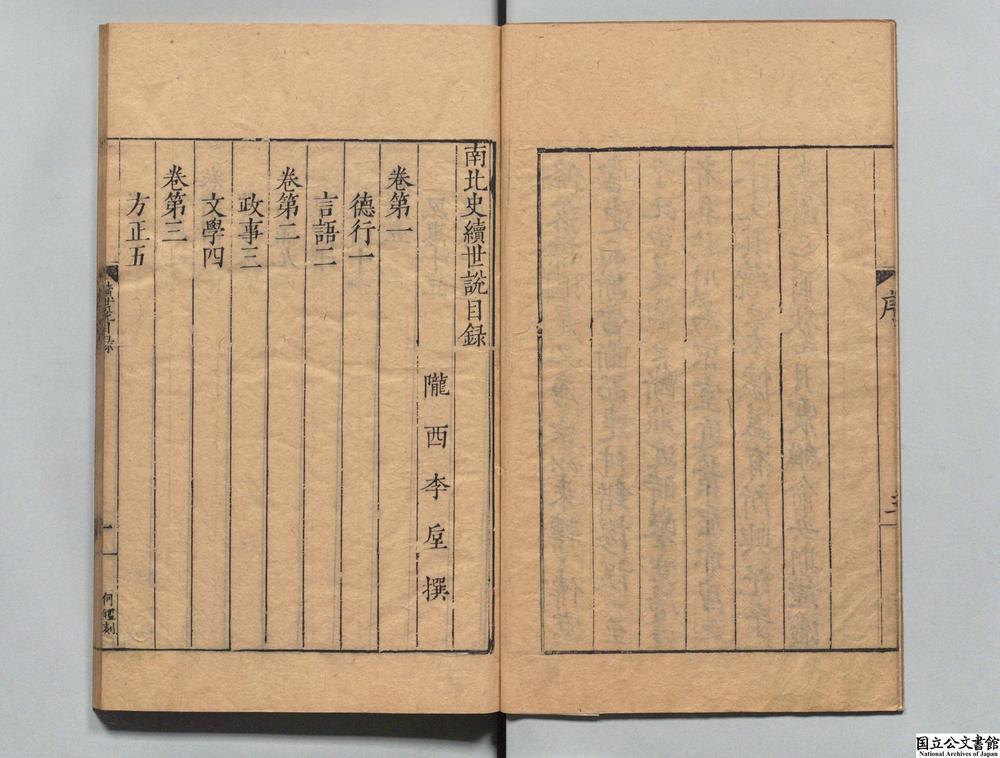 序
三
南北史續世說目錄
隴西李垕撰
卷第一
德行一
言語二
卷第二
政事三
文學四
卷第三
方正五
續世說目錄
一
何鯨刻
国立公文書館
National Archives of Japan